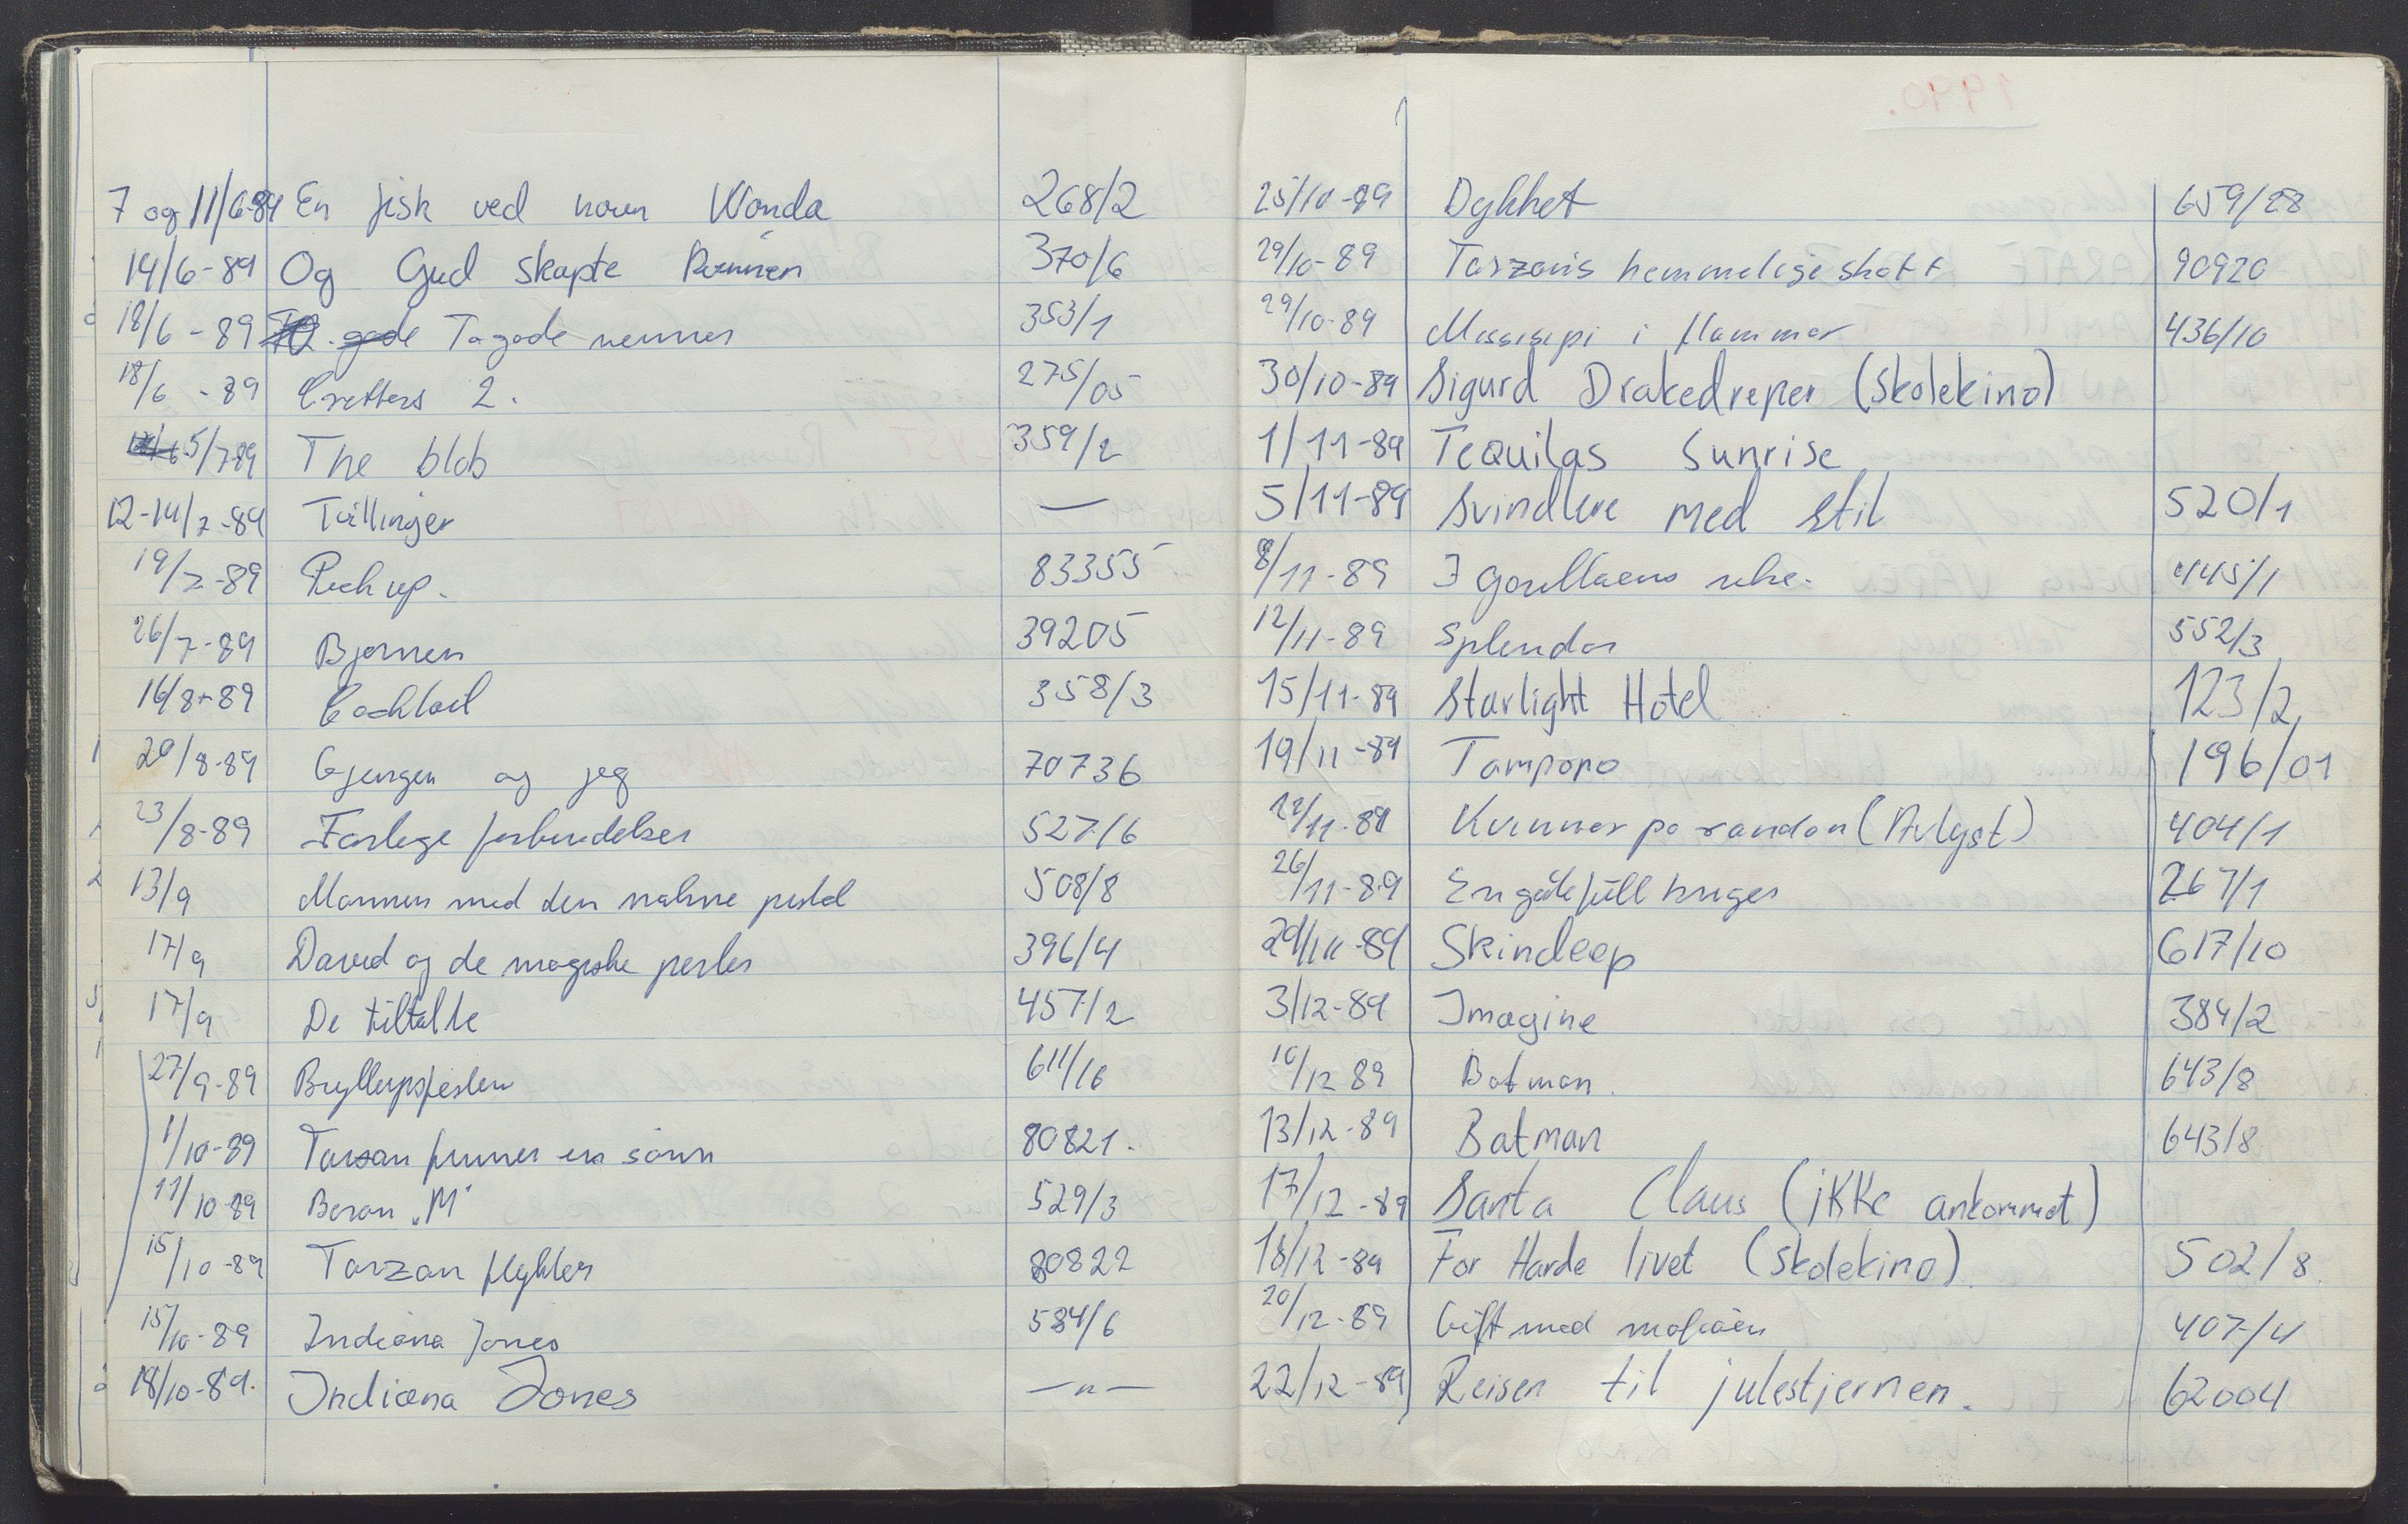 7 og 11/6-89 En fisk ved navn Wanda 268/2
14/6-89 Og Gud skapte kvinnen 370/6
18/6-89 To gode venner 353/1
18/6-89 Critters 2. 275/05
5/7-89 The blob 359/2
12-14/7-89 Tvillinger —
19/7-89 Pick up. 83355
26/7-89 Bjørnen 39205
16/8-89 Cocktail 358/3
20/8-89 Gjengen og jeg 70736
23/8-89 Farlige forbindelser 527/6
13/9 Mannen med den nakne pistol 508/8
17/9 David og de magiske perler 396/4
17/9 De tiltalte 457/2
27/9-89 Bryllupsfesten 611/16
1/10-89 Tarsan finner en sønn 80821.
11/10-89 Baron "M" 529/3
15/10-89 Tarzan flykter 80822
15/10-89 Indiana Jones 584/6
18/10-89. Indiana Jones —"—
1990.
25/10-89 Dykket 659/28
29/10-89 Tarzans hemmelige skatt 90920
29/10-89 Missisipi i flammer 436/10
30/10-89 Sigurd Drakedreper (Skolekino)
1/11-89 Tequilas Sunrise
5/11-89 Svindlere med stil 520/1
8/11-89 I Gorillaens rike. 445/1
12/11-89 Splendor 552/3
15/11-89 Starlight Hotel 123/2
19/11-89 Tampopo 196/01
22/11-89 Kvinner på randen (Avlyst) 404/1
26/11-89 En gåtefull kriger 267/1
29/11-89 Skindeep 617/10
3/12-89 Imagine 384/2
10/12 89 Batman. 643/8
13/12-89 Batman 643/8
17/12-89 Santa Claus (ikke ankommet)
18/12-89 For Harde livet (Skolekino). 502/8
20/12-89 Gift med mafiaen 407/4
22/12-89 Reisen til julestjernen. 62004